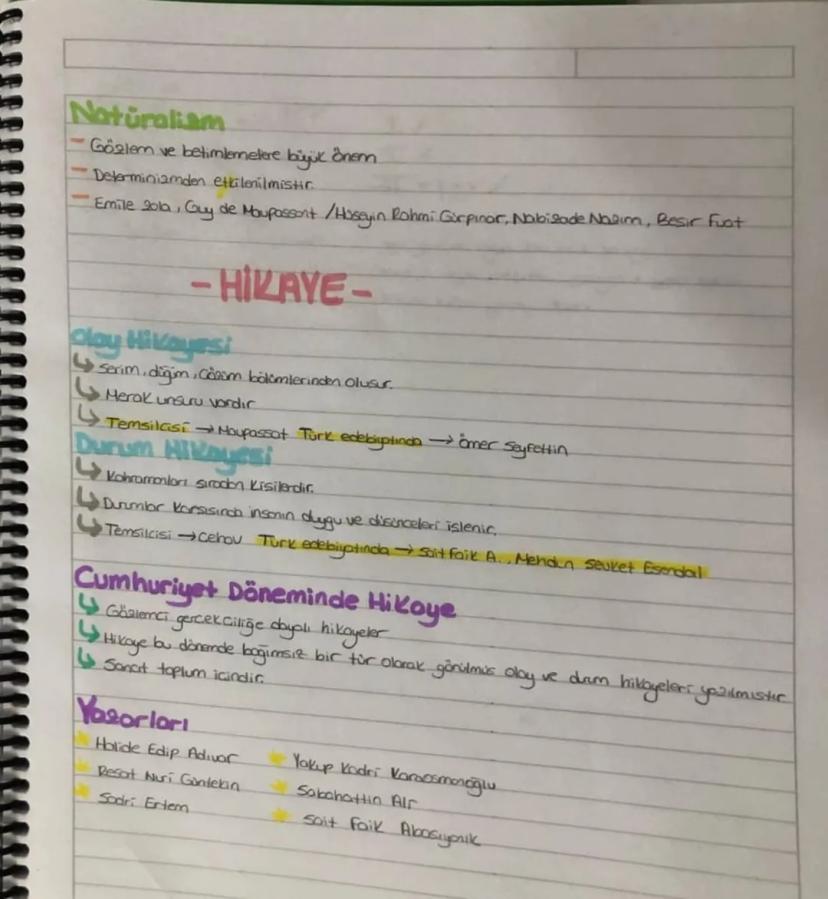 Natüralizm
- Gözlem ve betimlemelere büyük önem
- Determinizmden etkilenilmiştir.
- Emile Zola, Guy de Maupassant / Hüseyin Rahmi Gürpınar, Nabizade Nazım, Beşir Fuat
- HİKAYE -
Olay Hikayesi
↳ Serim, düğüm, çözüm bölümlerinden oluşur.
↳ Merak unsuru vardır
↳ Temsilcisi → Maupassat Türk edebiyatında → Ömer Seyfettin
Durum Hikayesi
↳ Kahramanları sıradan kişilerdir.
↳ Durumlar karşısında insanın duygu ve düşünceleri işlenir.
↳ Temsilcisi → Cehov Türk edebiyatında → Sait Faik A.., Mehduh Şevket Esendal
Cumhuriyet Döneminde Hikaye
↳ Gözlemci gerçekçiliğe dayalı hikayeler
↳ Hikaye bu dönemde bağımsız bir tür olarak görülmüş olay ve durum hikayeleri yazılmıştır
↳ Sanat toplum içindir.
Yazarları
Halide Edip Adıvar Yakup Kadri Karaosmanoğlu
Reşat Nuri Güntekin Sabahattin Ali
Sadri Ertem Sait Faik Abasıyanık